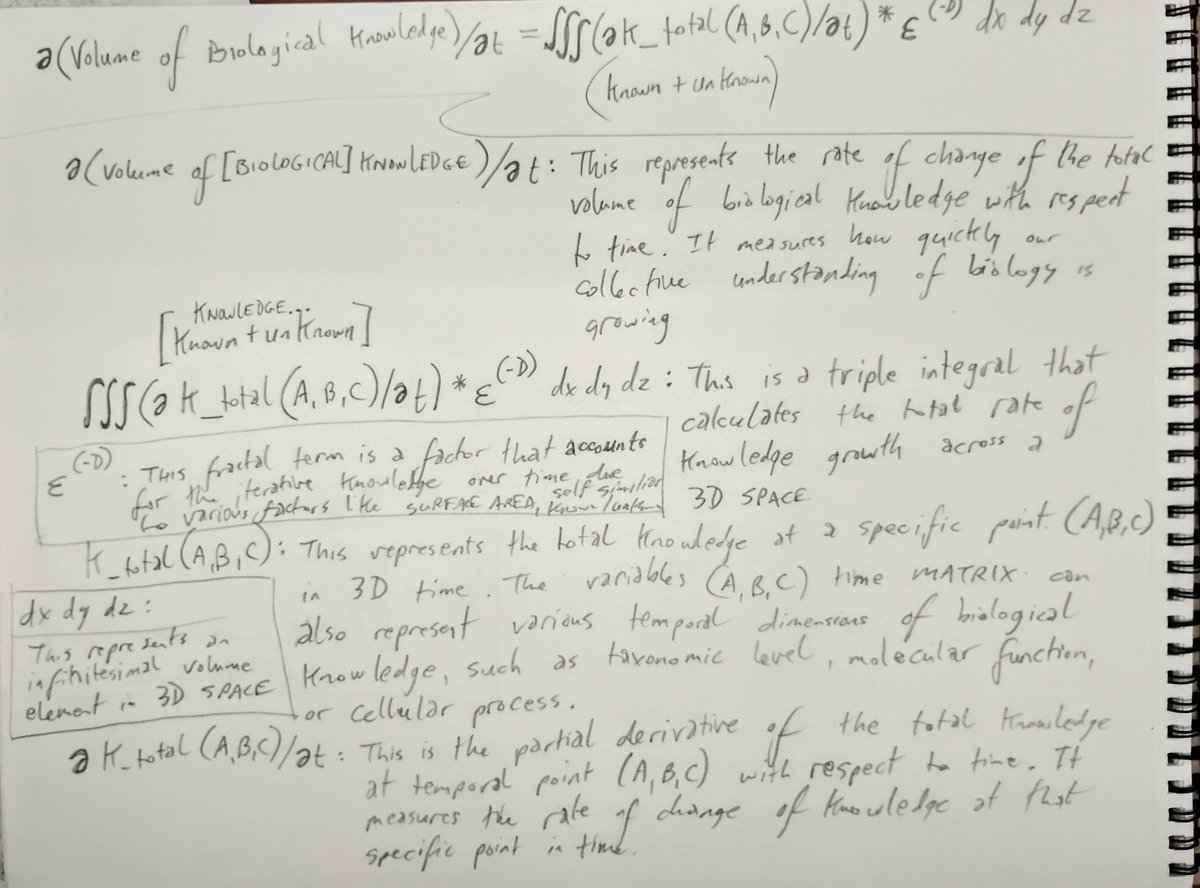 ∂(Volume of Biological Knowledge)/∂t = ∭(∂K_total(A,B,C)/∂t) * ε^(-D) dx dy dz
(Known + unKnown)
∂(Volume of [BIOLOGICAL] KNOWLEDGE)/∂t: This represents the rate of change of the total
volume of biological Knowledge with respect
to time. It measures how quickly our
collective understanding of biology is
growing
KNOWLEDGE...
[Known + unKnown]
∭(∂K_total(A,B,C)/∂t) * ε^(-D) dx dy dz: This is a triple integral that
calculates the total rate of
Knowledge growth across a
3D SPACE
ε^(-D): This fractal term is a factor that accounts
for the iterative Knowledge over time due
to various factors like SURFACE AREA, self similiar
K_total(A,B,C): This represents the total Knowledge at a specific point (A,B,C)
in 3D time. The variables (A,B,C) time MATRIX can
also represent various temporal dimensions of biological
Knowledge, such as taxonomic level, molecular function,
or cellular process.
dx dy dz:
This represents an
infinitesimal volume
element in 3D SPACE
∂K_total(A,B,C)/∂t: This is the partial derivative of the total Knowledge
at temporal point (A,B,C) with respect to time. It
measures the rate of change of Knowledge at that
specific point in time.